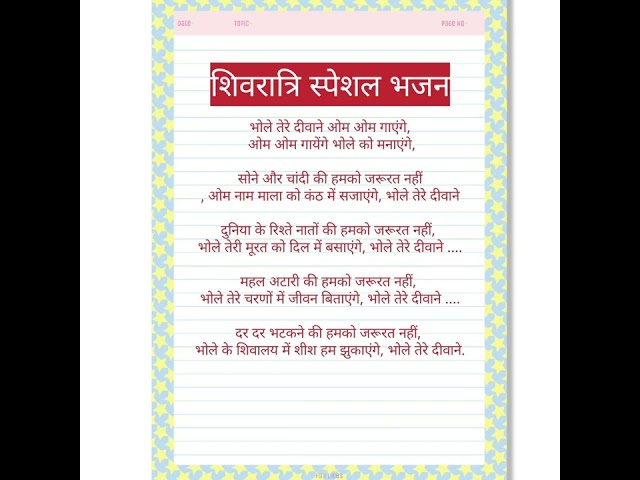 DATE-
TOPIC-
PAGE NO-
शिवरात्रि स्पेशल भजन
भोले तेरे दीवाने ओम ओम गाएंगे,
ओम ओम गायेंगे भोले को मनाएंगे,
सोने और चांदी की हमको जरूरत नहीं
, ओम नाम माला को कंठ में सजाएंगे, भोले तेरे दीवाने
दुनिया के रिश्ते नातों की हमको जरूरत नहीं,
भोले तेरी मूरत को दिल में बसाएंगे, भोले तेरे दीवाने ....
महल अटारी की हमको जरूरत नहीं,
भोले तेरे चरणों में जीवन बिताएंगे, भोले तेरे दीवाने ....
दर दर भटकने की हमको जरूरत नहीं,
भोले के शिवालय में शीश हम झुकाएंगे, भोले तेरे दीवाने.